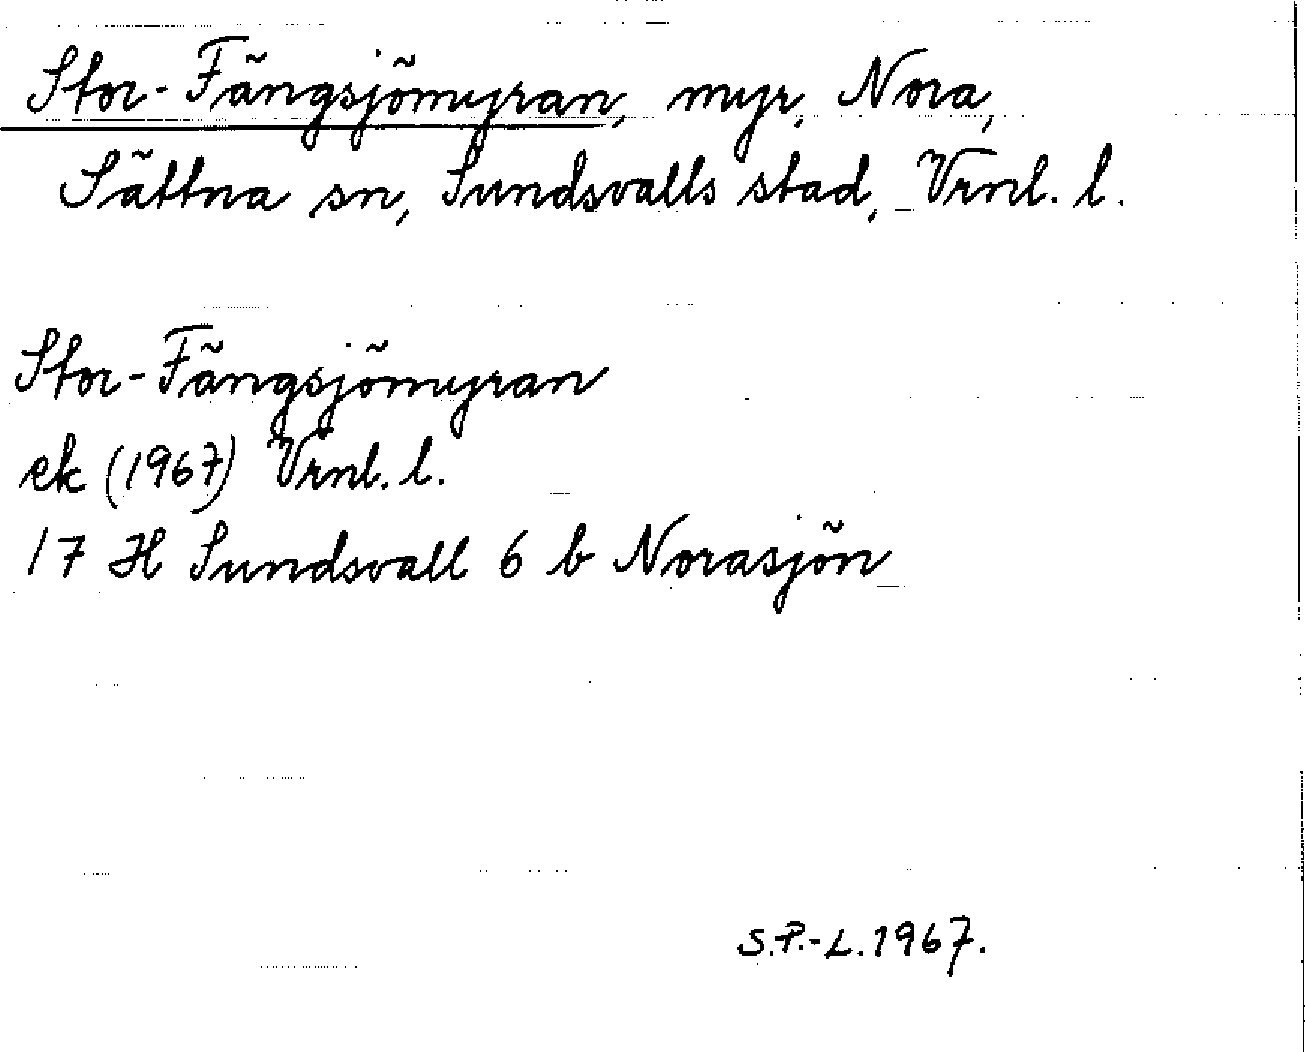 Stor-Fängsjömyran, myr, Nora,
Sättna sn, Sundsvalls stad, Vrnl. l.
Stor-Fängsjömyran
ek (1967) Vrnl. l.
17 H Sundsvall 6 b Norasjön
S.P.-L. 1967.